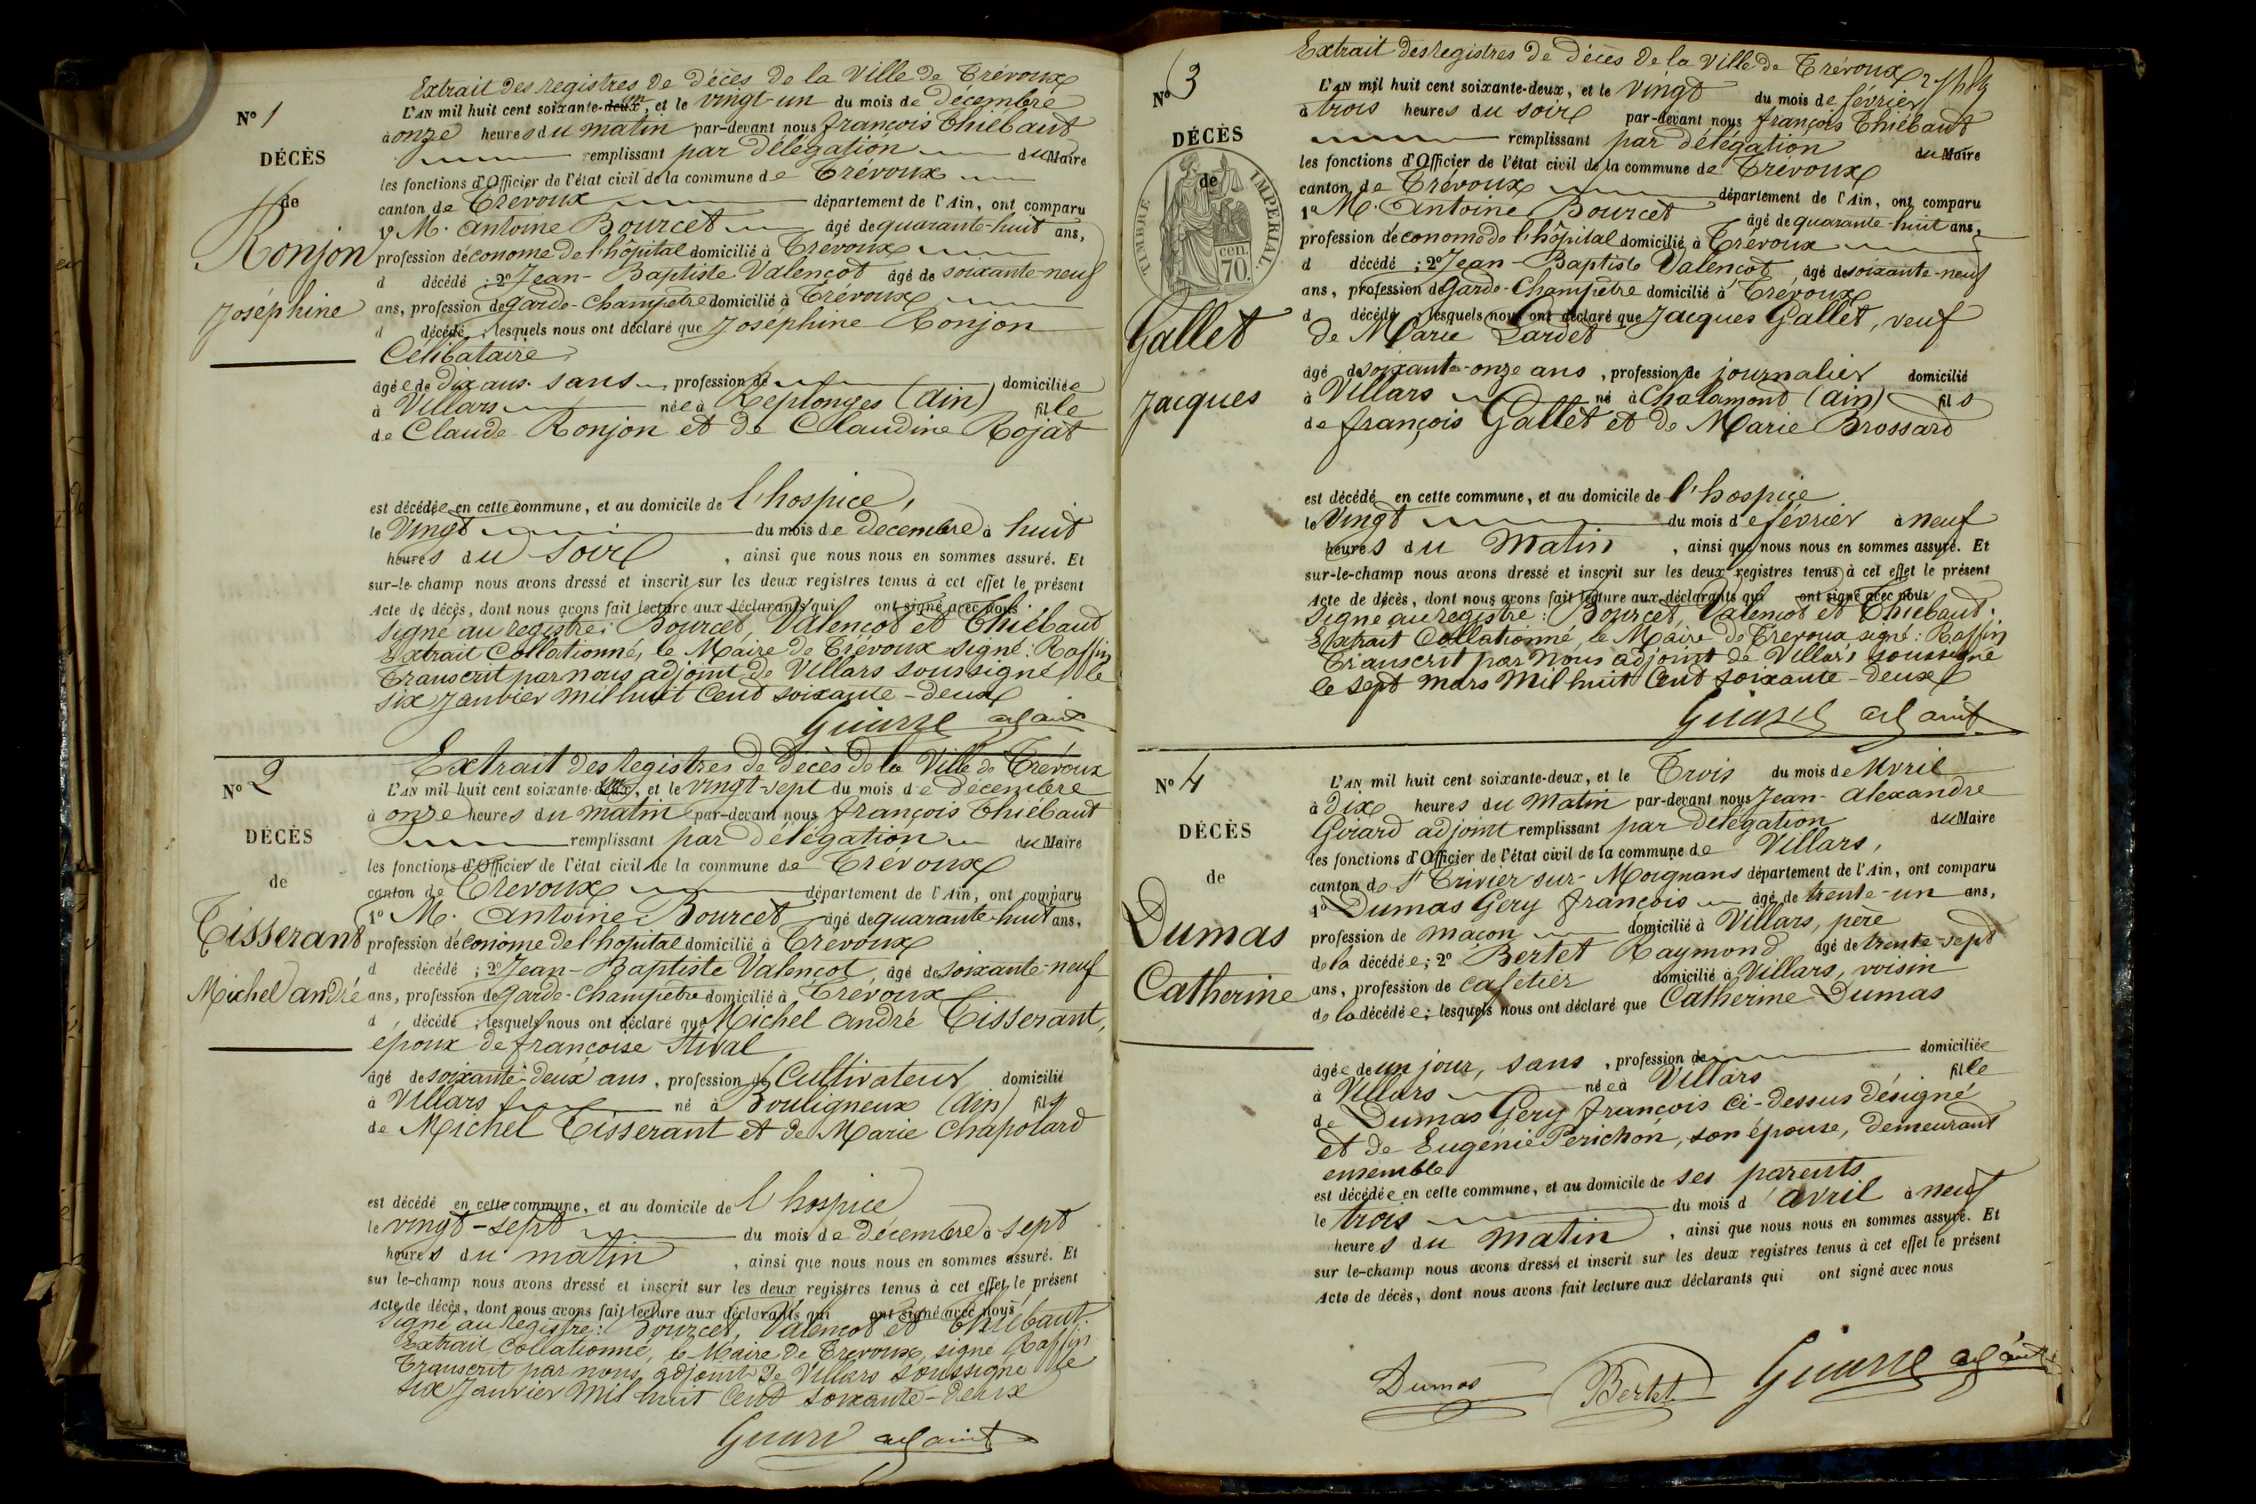 Extrait des registres de décès de la Ville de Trévoux
N° 1
L'AN mil huit cent soixante-deux un, et le vingt-un du mois de décembre
à onze heures du matin par-devant nous françois Thiébaut
DÉCÈS
remplissant par délégation du Maire
les fonctions d'Officier de l'état civil de la commune de Trévoux
de
canton de Trévoux département de l'Ain, ont comparu
1° M. Antoine Bourcet âgé de quarante-huit ans,
Ronjon
profession d'économe de l'hôpital domicilié à Trévoux
d décédé ; 2° Jean-Baptiste Valençot âgé de soixante-neuf
Joséphine
ans, profession de garde-champêtre domicilié à Trévoux
d décédé ; lesquels nous ont déclaré que Joséphine Ronjon
Célibataire
âgée de dix ans. sans profession de domiciliée
à Villars née à Replonges (Ain) fille
de Claude Ronjon et de Claudine Rojat
est décédée en cette commune, et au domicile de l'hospice,
le Vingt du mois de décembre à huit
heures du soir , ainsi que nous nous en sommes assuré. Et
sur-le-champ nous avons dressé et inscrit sur les deux registres tenus à cet effet le présent
Acte de décès, dont nous avons fait lecture aux déclarants qui ont signé avec nous
Signé au registre : Bourcet, Valençot et Thiébaut
Extrait Collationné, le Maire de Trévoux signé : Raffin
Transcrit par nous adjoint de Villars soussigné le
six Janvier mil huit Cent soixante-deux
Extrait des registres de décès de la Ville de Trévoux
N° 2
L'AN mil huit cent soixante-deux un, et le vingt-sept du mois de décembre
à onze heures du matin par-devant nous françois Thiébaut
DÉCÈS
remplissant par délégation du Maire
les fonctions d'Officier de l'état civil de la commune de Trévoux
de
canton de Trévoux département de l'Ain, ont comparu
1° M. Antoine Bourcet âgé de quarante-huit ans,
Tisserant
profession d'économe de l'hôpital domicilié à Trévoux
d décédé ; 2° Jean-Baptiste Valençot, âgé de soixante-neuf
Michel andré
ans, profession de garde-champêtre domicilié à Trévoux
d décédé ; lesquels nous ont déclaré que Michel andré Tisserant,
époux de françoise
âgé de soixante-deux ans, profession de Cultivateur domicilié
à Villars né à Bouligneux (Ain) fils
de Michel Tisserant et de Marie Chapolard
est décédé en cette commune, et au domicile de l'hospice
le vingt-sept du mois de décembre à sept
heures du matin , ainsi que nous nous en sommes assuré. Et
sur le-champ nous avons dressé et inscrit sur les deux registres tenus à cet effet le présent
Acte de décès, dont nous avons fait lecture aux déclarants qui ont signé avec nous
Signé au registre : Bourcet, Valençot et Thiébaut.
Extrait Collationné, le Maire de Trévoux, signé Raffin
Transcrit par nous adjoint de Villars soussigné le
six Janvier mil huit Cent soixante-deux
Extrait des registres de décès de la Ville de Trévoux
N° 3
L'AN mil huit cent soixante-deux, et le Vingt du mois de février
à trois heures du soir par-devant nous françois Thiébaut
DÉCÈS
remplissant par délégation du Maire
les fonctions d'Officier de l'état civil de la commune de Trévoux
de
TIMBRE IMPÉRIAL
cen.
70.
canton de Trévoux département de l'Ain, ont comparu
1° M. Antoine Bourcet âgé de quarante-huit ans,
profession d'économe de l'hôpital domicilié à Trévoux
d décédé ; 2° Jean-Baptiste Valençot âgé de soixante-neuf
ans, profession de garde-Champêtre domicilié à Trévoux
d décédé lesquels nous ont déclaré que Jacques Gallet, veuf
Gallet
de Marie Lardet
âgé de soixante-onze ans, profession de journalier domicilié
Jacques
à Villars né à Chalamont (Ain) fils
de françois Gallet et de Marie Brossard
est décédé en cette commune, et au domicile de l'hospice
le Vingt du mois de février à neuf
heures du Matin , ainsi que nous nous en sommes assuré. Et
sur-le-champ nous avons dressé et inscrit sur les deux registres tenus à cet effet le présent
Acte de décès, dont nous avons fait lecture aux déclarants qui ont signé avec nous
Signé au registre : Bourcet, Valençot et Thiébaut.
Extrait Collationné, le Maire de Trévoux signé : Raffin
Transcrit par Nous adjoint de Villars soussigné
le sept mars Mil huit Cent soixante-deux
N° 4
L'AN mil huit cent soixante-deux, et le Trois du mois de Avril
à dix heures du Matin par-devant nous Jean-Alexandre
Girard adjoint remplissant par délégation du Maire
DÉCÈS
les fonctions d'Officier de l'état civil de la commune de Villars,
de
canton de St Trivier-sur-Moignans département de l'Ain, ont comparu
1° Dumas Gery françois âgé de trente-un ans,
Dumas
profession de maçon domicilié à Villars, père
de la décédée ; 2° Bertet Raymond âgé de trente-sept
Catherine
ans, profession de cafetier domicilié à Villars, voisin
de la décédée ; lesquels nous ont déclaré que Catherine Dumas
âgée de un jour, sans , profession de domiciliée
à Villars née à Villars fille
de Dumas Gery françois ci-dessus désigné
et de Eugénie Perichon, son épouse, demeurant
ensemble
est décédée en cette commune, et au domicile de ses parents
le trois du mois d'avril à neuf
heures du Matin , ainsi que nous nous en sommes assuré. Et
sur le-champ nous avons dressé et inscrit sur les deux registres tenus à cet effet le présent
Acte de décès, dont nous avons fait lecture aux déclarants qui ont signé avec nous
Dumas Bertet